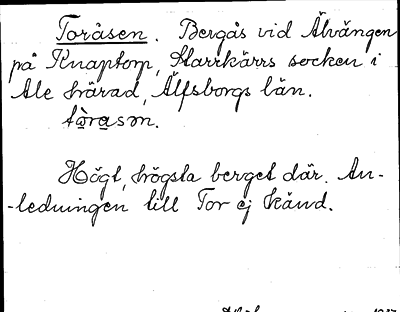 Toråsen. Bergås vid Älvängen
på Knaptorp, Starrkärrs socken i
Ale härad, Älfsborgs län.
tòrasm.
Högt, högsta berget där. An-
-ledningen till Tor ej känd.